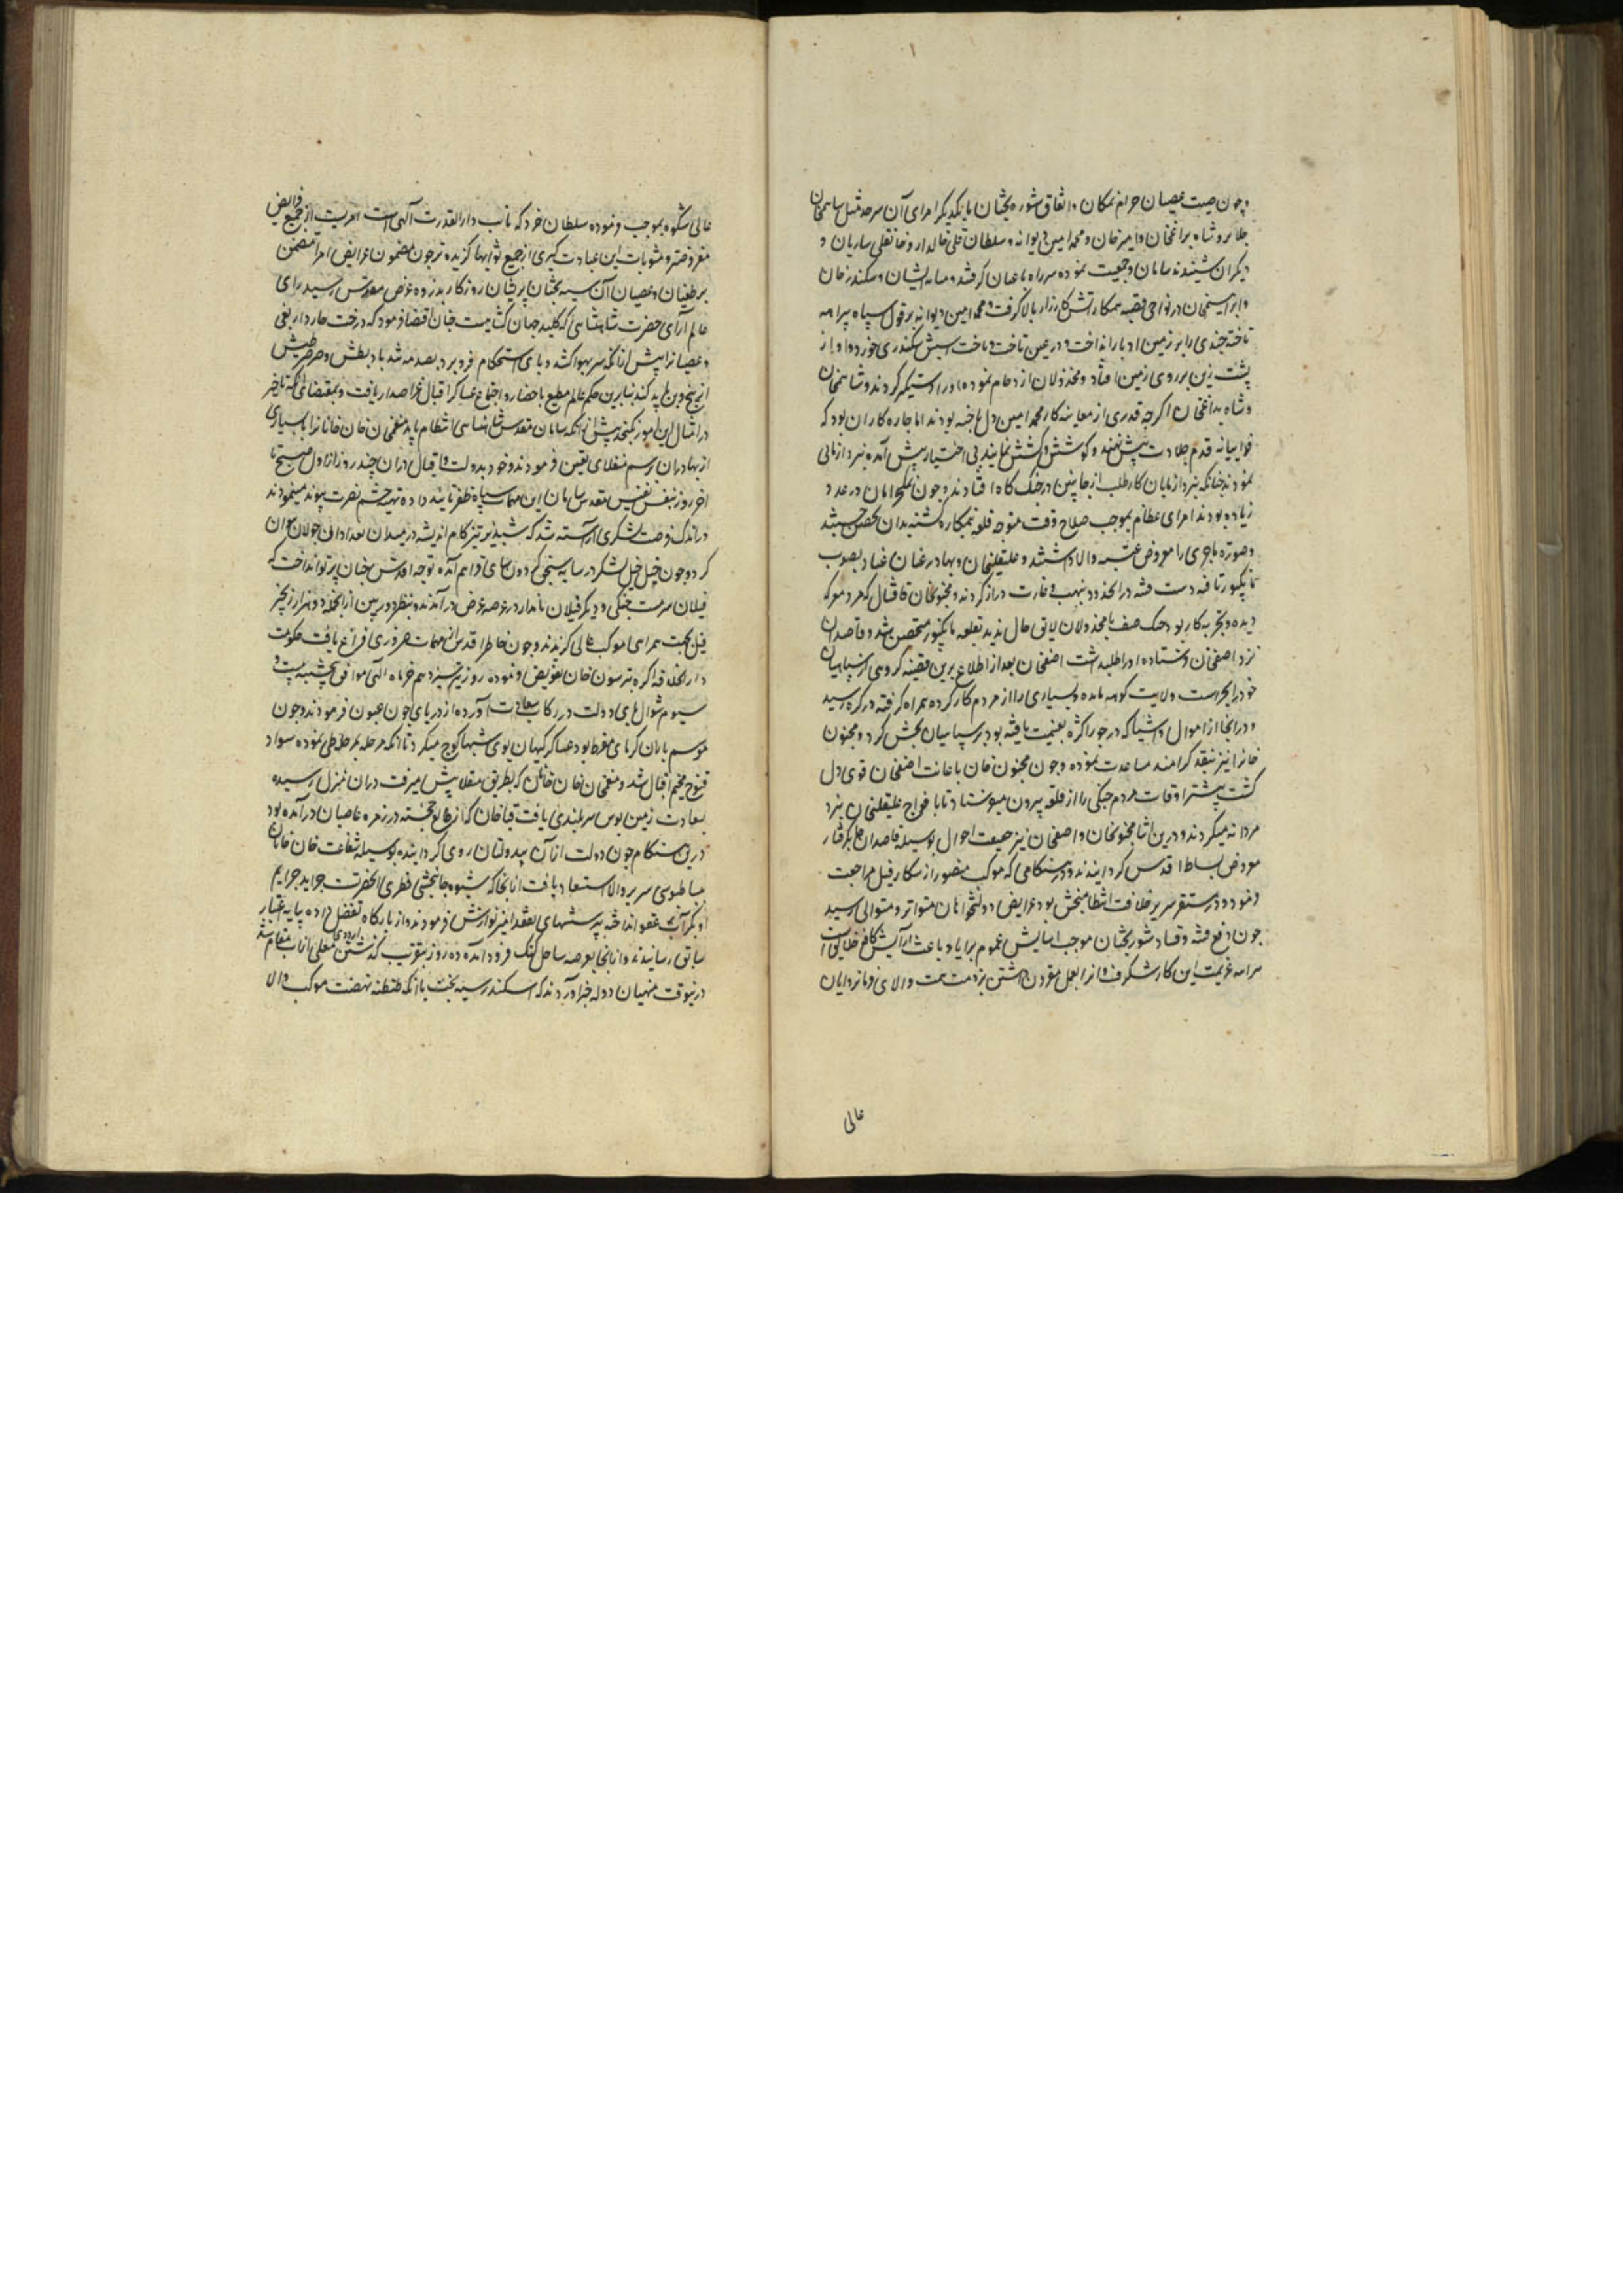 وچون صیت عصیان حرام نمکان و اتفاق شوره بختان بایکدیکر امرای آن سرحد مثل شاهمخان
جلایر و شاه بداغخان و امیر خان و محمد امین دیوانه و سلطان قلی خالدار و خانقلی ساربان و
دیکران شنیدند سامان جمعیت نموده سر راه باغیان کرفتند و میانه ایشان و سکندر خان
و ابراهیمخان در نواحی قصبه نیمکار آتش کارزار بالا کرفت و محمد امین دیوانه بر قول سپاه بیراهه
تاخته چندی را بر زمین ادبار انداخت و در عین تاخت و باخت اسپش سکندری خورد و او از
پشت زین بر روی زمین افتاد و مخذولان ازدحام نموده او را دستکیر کردند و شاهمخان
و شاه بداغخان اکرچه قدری از معاینه کار محمد امین دل باخته بودند اما چاره کار ان بود که
قدم جلادت پیش نهند و کوشش و کشش نمایند بی اختیار پیش آمده نبرد ازمائی
نمودند چنانکه نبرد ازمایان کار طلب از جانبین در جنک کاه افتادند و چون نمکحرامان در عدد
زیاده بودند امرای عظام بموجب صلاح وقت متوجه قلعه نیمکار کشته بدان متحصن شدند
و صورت ماجری را معروض عتبه والا داشتند و علیقلیخان و بهادر عنان عناد بصوب
مانکپور تافته دست فتنه در انحدود بنهب و غارت دراز کردند و مجنونخان قاقشال که مرد معرکه
دیده و تجربه کار بود جنک صف با مخذولان لایق حال ندید بقلعه مانکپور متحصن شد و قاصدان
نزد اصفخان فرستاده او را طلبداشت اصفخان بعد از اطلاع برین قضیه کروهی از سپاهیان
خود را بحراست ولایت کدهه مانده و بسیاری را از مردم کار کرده همراه کرفته در کره رسید
و در انجا از اموال و اشیا که در چوراکره بغنیمت یافته بود بر سپاهیان بخش کرد و مجنون
خانرا نیز بنقد کرامند مساعدت نموده و چون مجنون خان باعانت اصفخان قوی دل
کشت بیشتر اوقات مردم جنکی را از قلعه بیرون میفرستاد تا با افواج علیقلیخان نبرد
مردانه میکردند و درین اثنا مجنونخان و اصفخان نیز حقیقت احوال بوسیله قاصدان جلد رفتار
معروض بساط اقدس کردانیدند و در هنکامی که موکب منصور از شکار فیل مراجعت
فرموده در مستقر سریر خلافت انتظام بخش بود عرایض دولتخواهان متواتر و متوالی رسید
چون دفع فتنه و فساد شوربختان موجب اسایش عموم برایا و باعث آرایش کافه خلایق است
سرانجام عزیمت این کار شکرف و انرا بعمل مقرون داشتن بر ذمت همت والای فرمانروایان
عالی
عالی شکوه بموجب فرموده سلطان خرد که نایب دار القدرت آلهی است امریست از جمیع فرایض
مفروضتر و مثوبات این عبادت کبری از جمیع ثوابها کزیده تر چون مضمون عرایض امرا متضمن
بر طغیان و عصیان آن سیه بختان پریشان روزکار بذروه عرض مقدس رسید رای
عالم آرای حضرت شاهنشاهی که کلید جهان کشائیست چنان اقتضا فرمود که درخت خاردار بغی
و عصیانرا پیش ازانکه سر بهوا کشد و پای استحکام فرو برد بصدمه تند باد بطش و صرصر طیش
از بیخ و بن باید کند بنابرین حکم عالم مطیع باحضار و اجتماع عساکر اقبال عز اصدار یافت و بمقتضای انکه تاخیر
در امثال این امور نکنجد پیش از انکه سامان مقدس شاهنشاهی انتظام یابد منعم خان خانخانانرا با بسیاری
از بهادران برسم منقلای تعین فرمودند و خود بدولت و اقبال دران چند روز از اول صبح تا
اخر روز بنفس نفیس مقدس سامان این مهمات سپاه ظفر تائید داده تهیه حشم نصرت پیوند مینمودند
در اندک فرصت لشکری آراسته شد که شبدیز تیز کام اندیشه در میدان تعداد آن جولان نتوان
کرد و چون خیل خیل لشکر در سایه سنجق کردون سای فراهم آمده توجه اقدس چنان پرتو انداخت که
فیلان سرمست جنکی و دیکر فیلان نامدار در عرصه عرض در آمدند و بنظر دوربین از انجمله دو هزار زنجیر
فیل بجهت همراهی موکب عالی کزیدند و چون خاطر اقدس از مهمات ضروری فراغ یافت حکومت
دار الخلافه اکره بترسون خان تفویض فرموده روز تیر سیزدهم خرداد ماه الهی موافق پنجشنبه بیست و
سیوم شوال پای دولت در رکاب سعادت آورده از دریای جون عبور فرمودند و چون
موسم تابان کرمای مفرط بود عساکر کیهان پوی شبها کوچ میکرد تا انکه مرحله بمرحله طی نموده سواد
قنوج مخیم اقبال شد و منعم خان خانخانان که بطریق منقلا پیش میرفت دران منزل رسیده
بسعادت زمین بوس سربلندی یافت قیا خان که از طالع خجسته در زمره عاصیان در آمده بود
درین هنکام چون دولت ازان بیدولتان روی کردانیده بوسیله شفاعت خان خانان
بساط بوسی سریر والا استسعاد یافت ازانجا که شیوه جانبخشی فطری انحضرتست جراید جرایم
او بکرآب عفو انداخته بپرسشهای تفقد امیز نوازش فرمودند و از بارکاه تفضل داده پایه اعتبار
سابق رسانیدند و ازانجا بعرصه ساحل کنک فرود آمده ده روز بتقریب کذشتن اردوی معلی ازاب مقام شد
درینوقت منهیان دوله خبر آوردند که اسکندر سیه بخت باانکه طنطنه نهضت موکب والا